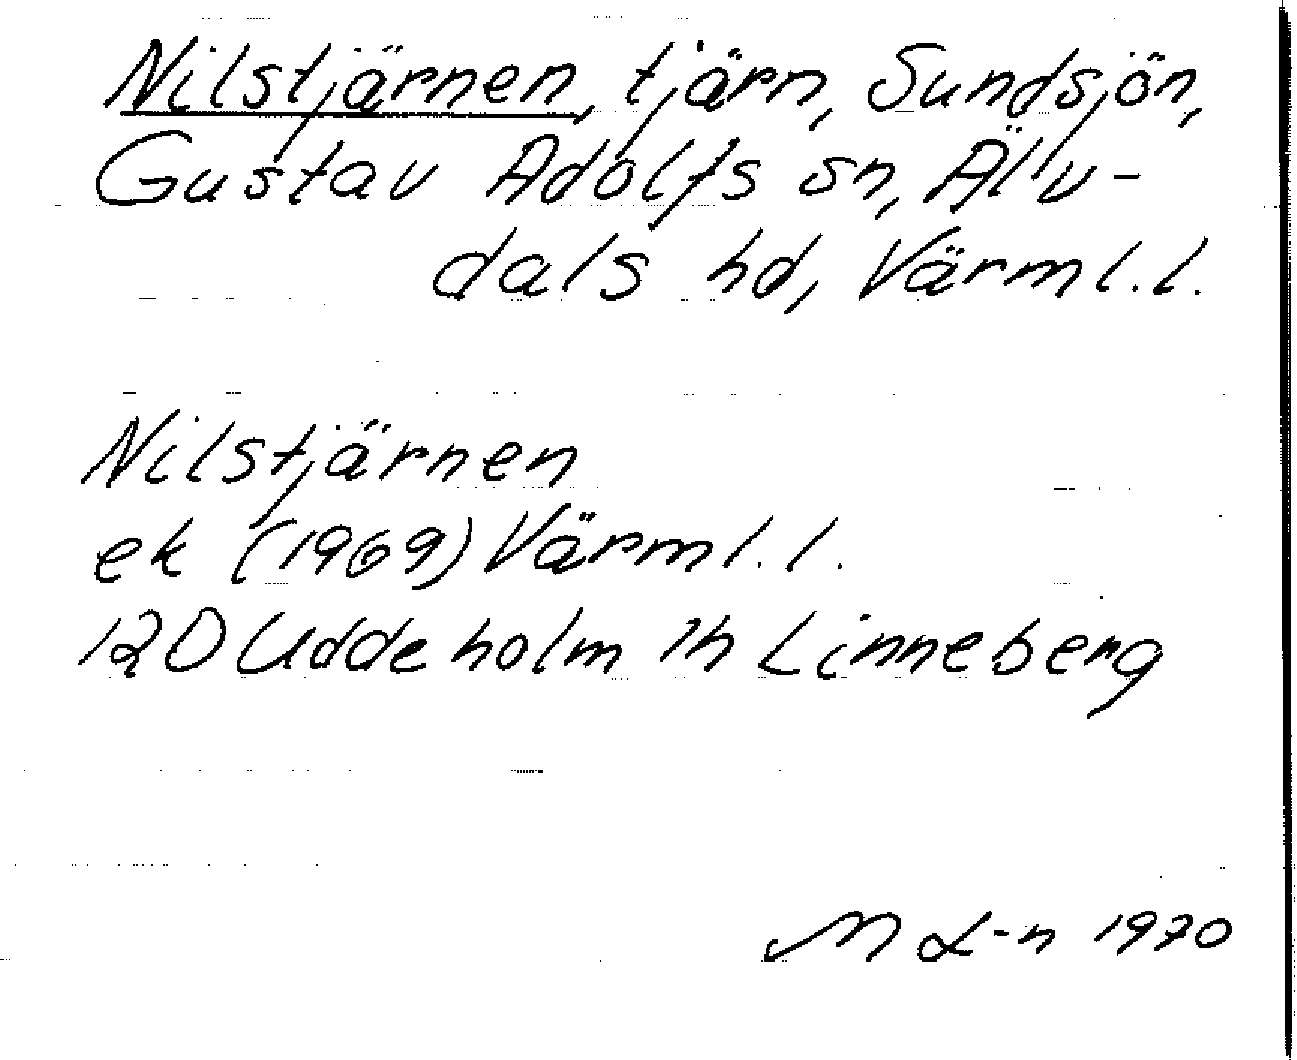 Nilstjärnen, tjärn, Sundsjön,
Gustav Adolfs sn, Älv-
dals hd, Värml.l.
Nilstjärnen
ek (1969) Värml.l.
12D Uddeholm 1h Linneberg
M L-n 1970